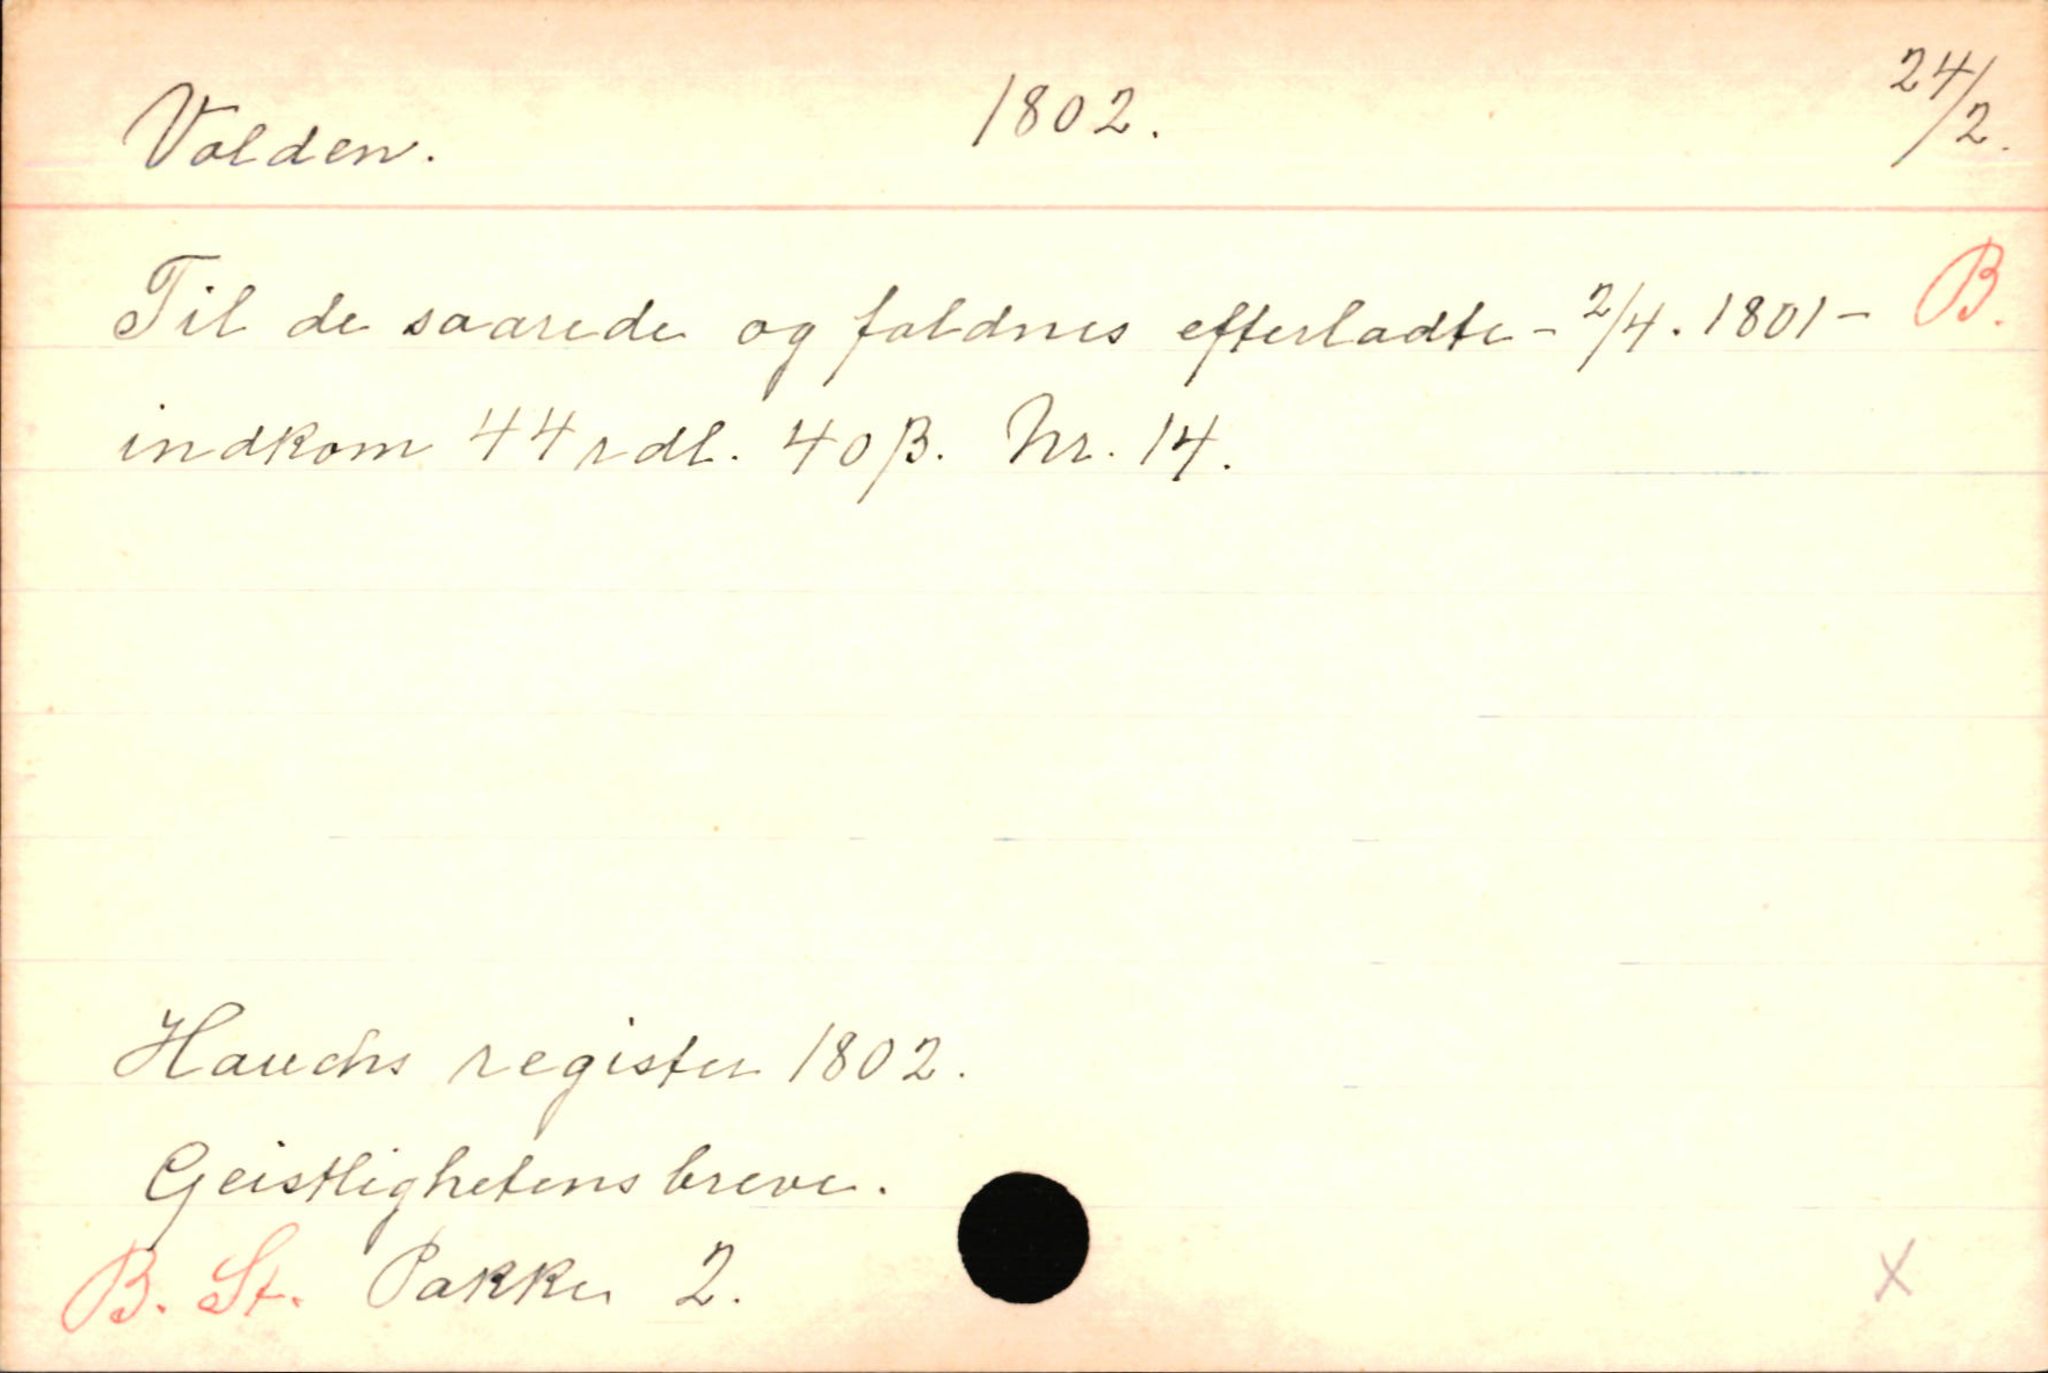 Volden. 1802. 24/2.
Til de saarede og faldnes efterladte - 2/4. 1801 - B.
indkom 44 rdl. 40 β. Nr. 14.
Hauchs register 1802.
Geistlighetens breve.
B. St. Pakke 2.
X